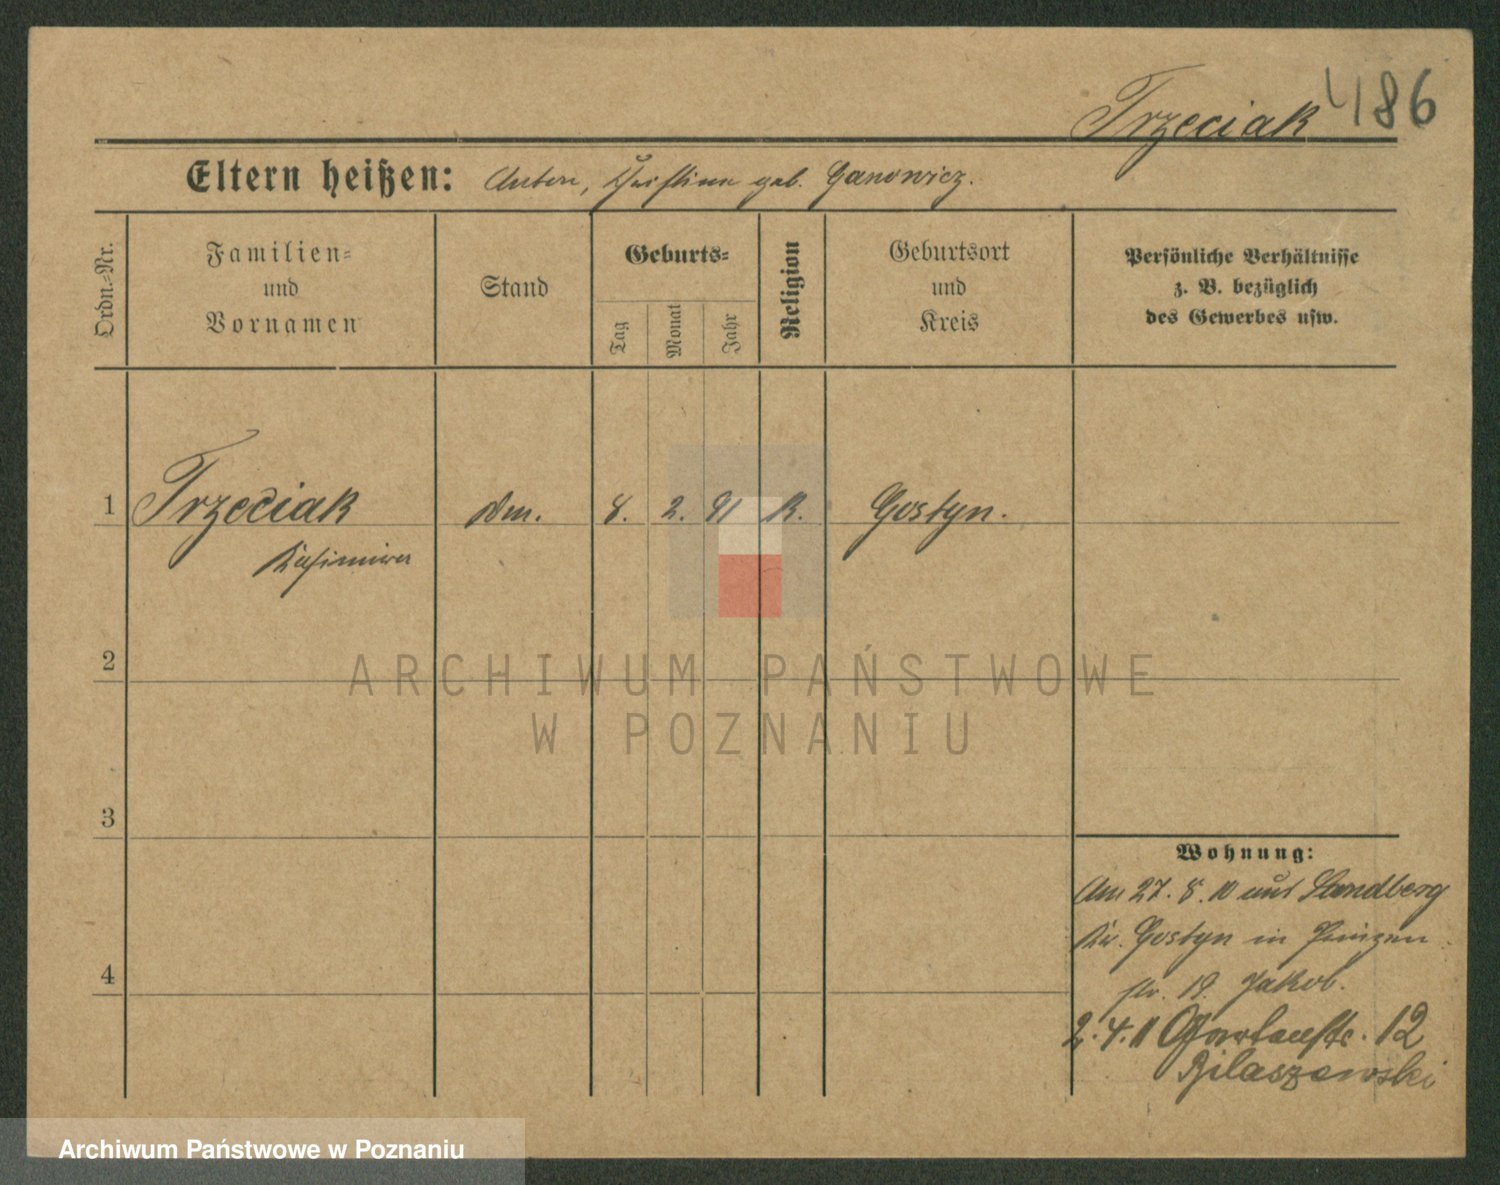 Trzeciak 486
Eltern heißen: Anton, Christina geb. Ganowicz.
Ordn.-Nr.
Familien-
und
Vornamen
Stand
Geburts-
Tag
Monat
Jahr
Religion
Geburtsort
und
Kreis
Persönliche Verhältnisse
z. B. bezüglich
des Gewerbes usw.
1 Trzeciak 8. 2. 91 K. Gostyn.
Kasimira
2
3
4
Wohnung:
Am 27. 8. 10 aus Sandberg
Kr. Gostyn in
str. 19. Jakob.
2. 4. 11 Gartenstr. 12
Bilaszewski
ARCHIWUM PAŃSTWOWE
W POZNANIU
Archiwum Państwowe w Poznaniu